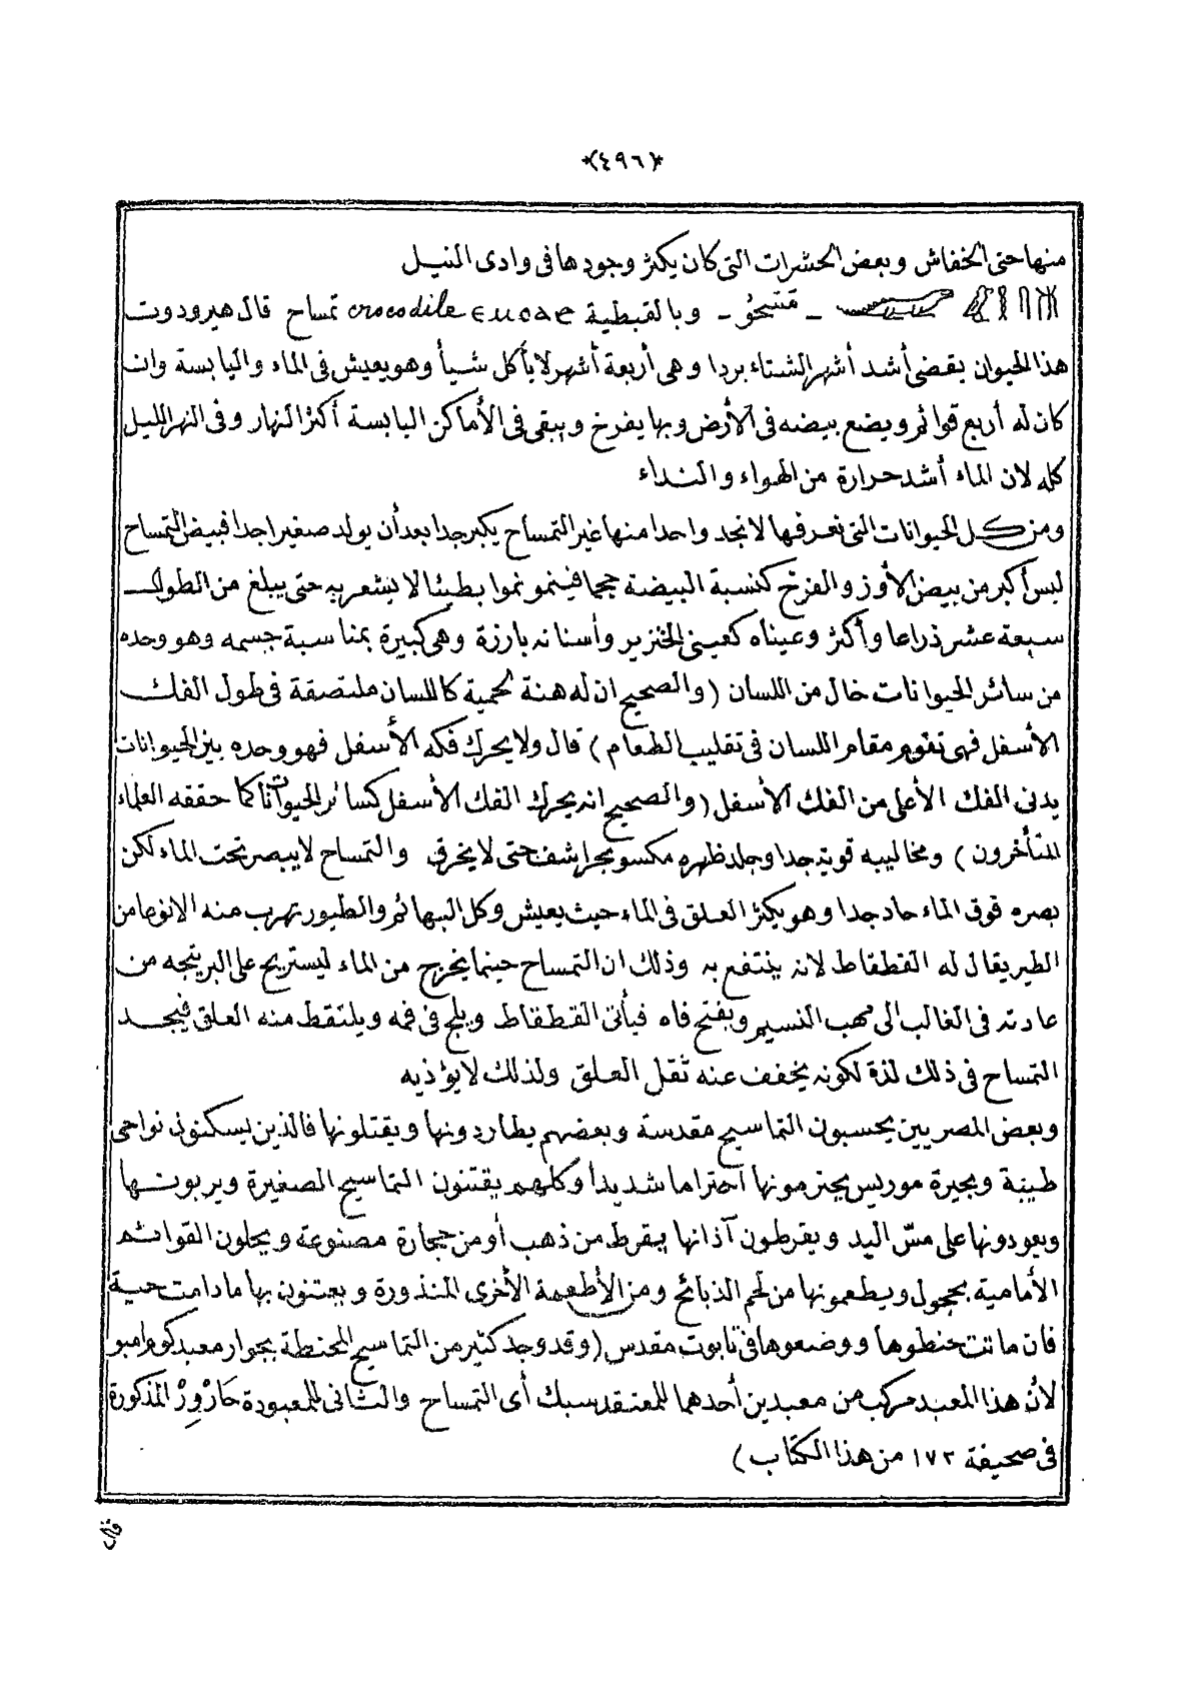 *(٤٩٦)*
منها حتى الخفاش وبعض الحشرات التى كان يكثر وجودها فى وادى النيل
ـ مَسَحُو ـ وبالقبطية εμσαε crocodile تمساح قال هيرودوت
هذا الحيوان يقضى أشد أشهر الشتاء بردا وهى أربعة أشهر لا يأكل شيأ وهو يعيش فى الماء واليابسة وان
كان له أربع قوائم ويضع بيضه فى الأرض وبها يفرخ ويبقى فى الأماكن اليابسة أكثر النهار وفى النهر الليل
كله لان الماء أشد حرارة من الهواء والنداء
ومن كل الحيوانات التى نعرفها لا نجد واحدا منها غير التمساح يكبر جدا بعد أن يولد صغيرا جدا فبيض التمساح
ليس أكبر من بيض الأوز والفرخ كنسبة البيضة حجما فينمو نموا بطيئا لا يشعر به حتى يبلغ من الطول
سبعة عشر ذراعا وأكثر وعيناه كعينى الخنزير وأسنانه بارزة وهى كبيرة بمناسبة جسمه وهو وحده
من سائر الحيوانات خال من اللسان (والصحيح ان له هنة لحمية كاللسان ملتصقة فى طول الفك
الأسفل فهى تقوم مقام اللسان فى تقليب الطعام) قال ولا يحرك فكه الأسفل فهو وحده بين الحيوانات
يدنى الفك الأعلى من الفك الأسفل (والصحيح انه يحرك الفك الأسفل كسائر الحيوانات كما حققه العلماء
المتأخرون) ومخاليبه قوية جدا وجلد ظهره مكسو بحراشف حتى لا يخرق والتمساح لا يبصر تحت الماء لكن
بصره فوق الماء حاد جدا وهو يكثر العلق فى الماء حيث يعيش وكل البهائم والطيور تهرب منه الا نوعا من
الطير يقال له القطقاط لانه ينتفع به وذلك ان التمساح حينما يخرج من الماء ليستريح على البر يتجه من
عادته فى الغالب الى مهب النسيم ويفتح فاه فيأتى القطقاط ويلج فى فمه ويلتقط منه العلق فيجد
التمساح فى ذلك لذة لكونه يخفف عنه ثقل العلق ولذلك لا يؤذيه
وبعض المصريين يحسبون التماسيح مقدسة وبعضهم يطاردونها ويقتلونها فالذين يسكنون نواحى
طيبة وبحيرة موريس يحترمونها احتراما شديدا وكلهم يقتنون التماسيح الصغيرة ويربونها
ويعودونها على مسّ اليد ويقرطون آذانها بقرط من ذهب أو من حجارة مصنوعة ويحلون القوائم
الأمامية بحجول ويطعمونها من لحم الذبائح ومن الأطعمة الأخرى المنذورة ويعتنون بها ما دامت حية
فان ماتت حنطوها ووضعوها فى تابوت مقدس (وقد وجد كثير من التماسيح المحنطة بجوار معبد كوم امبو
لأن هذا المعبد مركب من معبدين أحدهما للمعتقد سبك أى التمساح والثانى للمعبودة حَارْوِرْ المذكورة
فى صحيفة ١٧٢ من هذا الكتاب)
قال